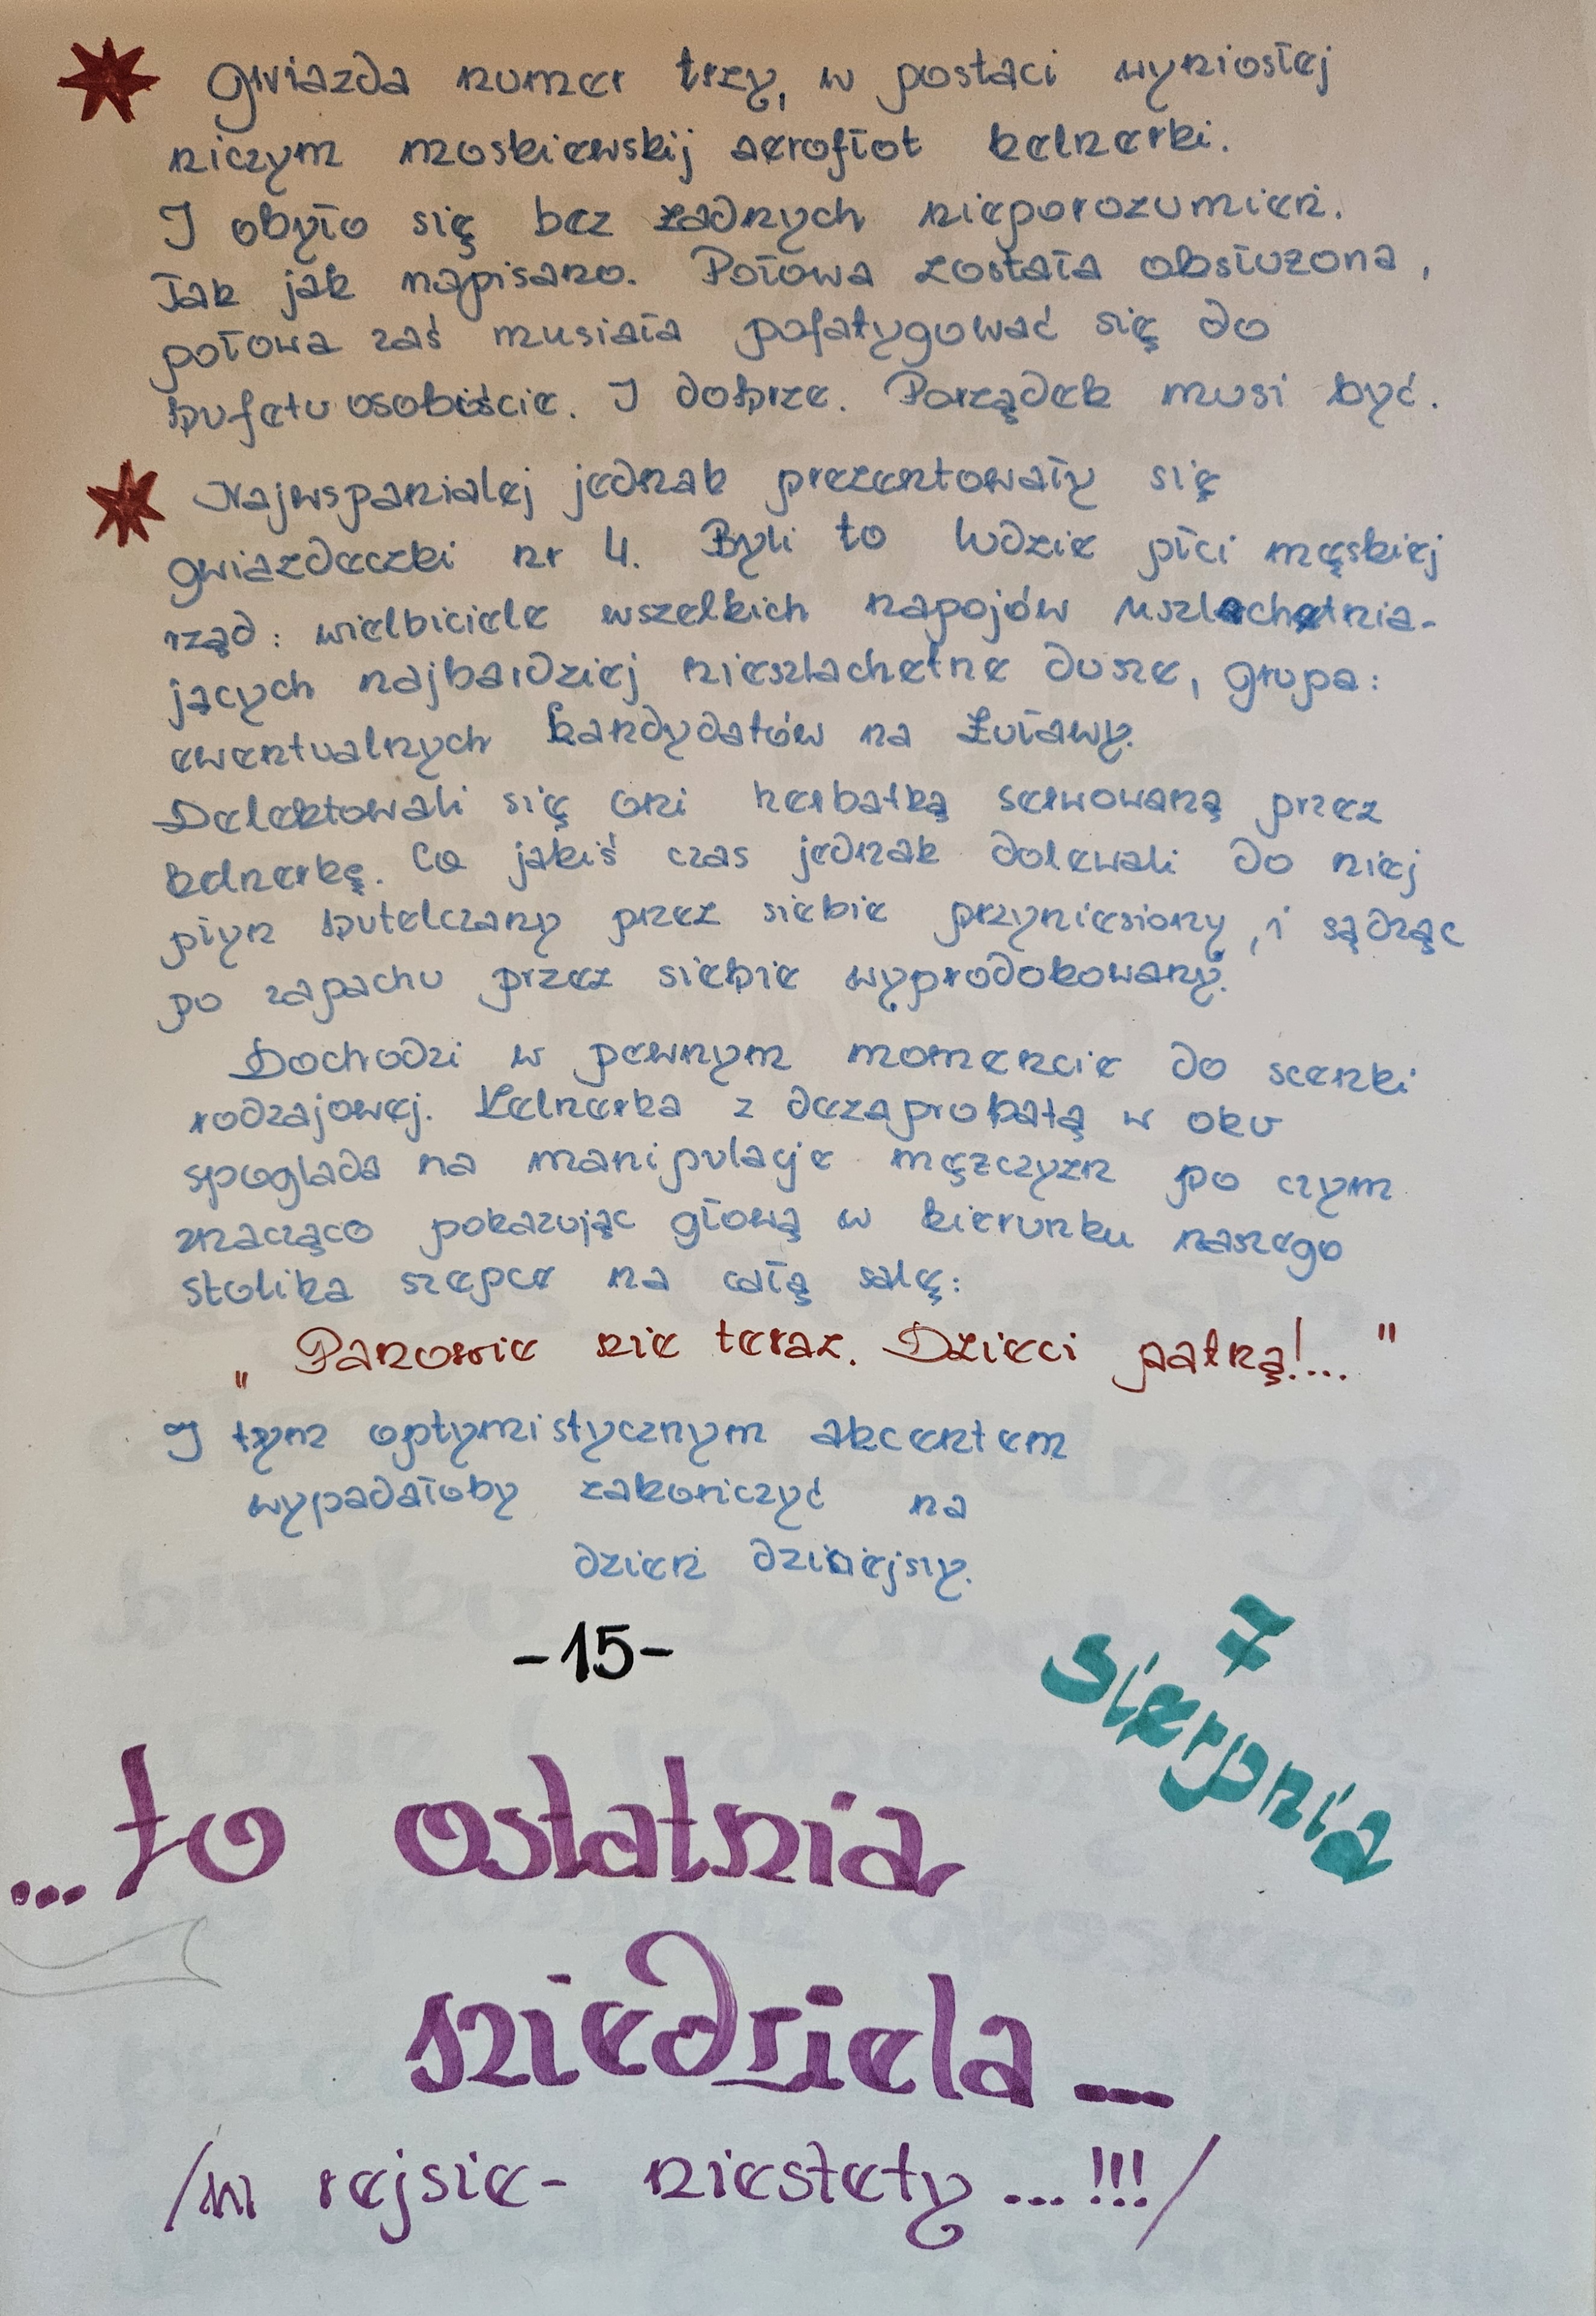 Gwiazda numer trzy, w postaci wyniosłej
niczym moskiewskij aerofłot kelnerki.
I obyło się bez żadnych nieporozumień.
Tak jak napisano. Połowa została obsłużona,
połowa zaś musiała pofatygować się do
bufetu osobiście. I dobrze. Porządek musi być.
Najwspanialej jednak prezentowały się
gwiazdeczki nr 4. Byli to ludzie płci męskiej
rząd: wielbiciele wszelkich napojów uszlachetnia-
jących najbardziej nieszlachetne dusze, grupa:
ewentualnych kandydatów na Żuławy.
Delektowali się oni herbatką serwowaną przez
kelnerkę. Co jakiś czas jednak dolewali do niej
płyn butelczany przez siebie przyniesiony, i sądząc
po zapachu przez siebie wyprodokowany.
Dochodzi w pewnym momencie do scenki
rodzajowej. Kelnerka z dezaprobatą w oku
spogląda na manipulacje mężczyzn po czym
znacząco pokazując głową w kierunku naszego
stolika szepce na całą salę:
„Panowie nie teraz. Dzieci patrzą!..."
I tym optymistycznym akcentem
wypadałoby zakończyć na
dzień dzisiejszy.
-15-
7
sierpnia
...to ostatnia
niedziela...
/w rejsie - niestety...!!!/